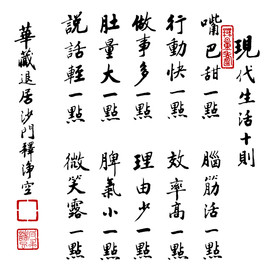 現代生活十則
嘴巴甜一點 腦筋活一點
行動快一點 效率高一點
做事多一點 理由少一點
肚量大一點 脾氣小一點
說話輕一點 微笑露一點
華藏退居沙門釋淨空